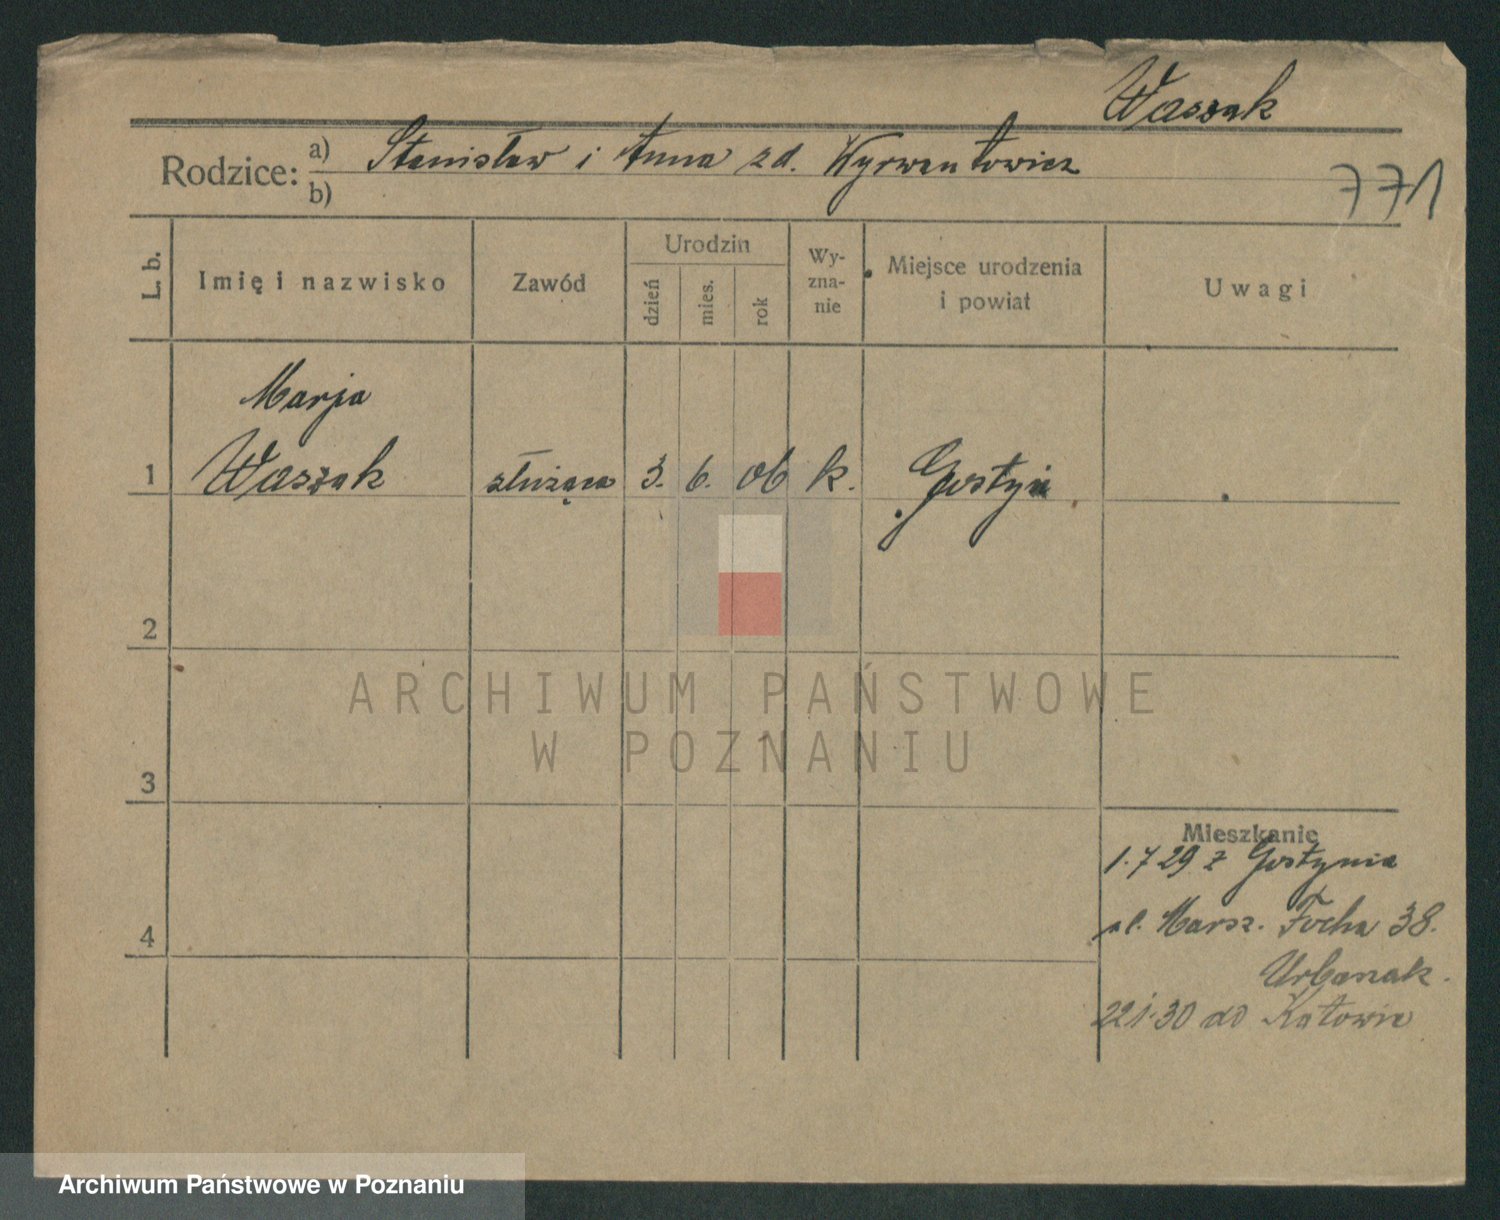 Waszak
Rodzice: a) Stanisław i Anna zd. Wyrwentowicz
b)
771
L. b.
Imię i nazwisko
Zawód
Urodzin
dzień
mies.
rok
Wy-
zna-
nie
Miejsce urodzenia
i powiat
Uwagi
Marja
1 Waszak służąca 3. 6. 06 k. Gostyń
2
3
4
ARCHIWUM PAŃSTWOWE
W POZNANIU
Mieszkanie
1.7 29 z Gostynia
ul. Marsz. Focha 38.
Urbaniak.
22 1.30 do Katowic
Archiwum Państwowe w Poznaniu